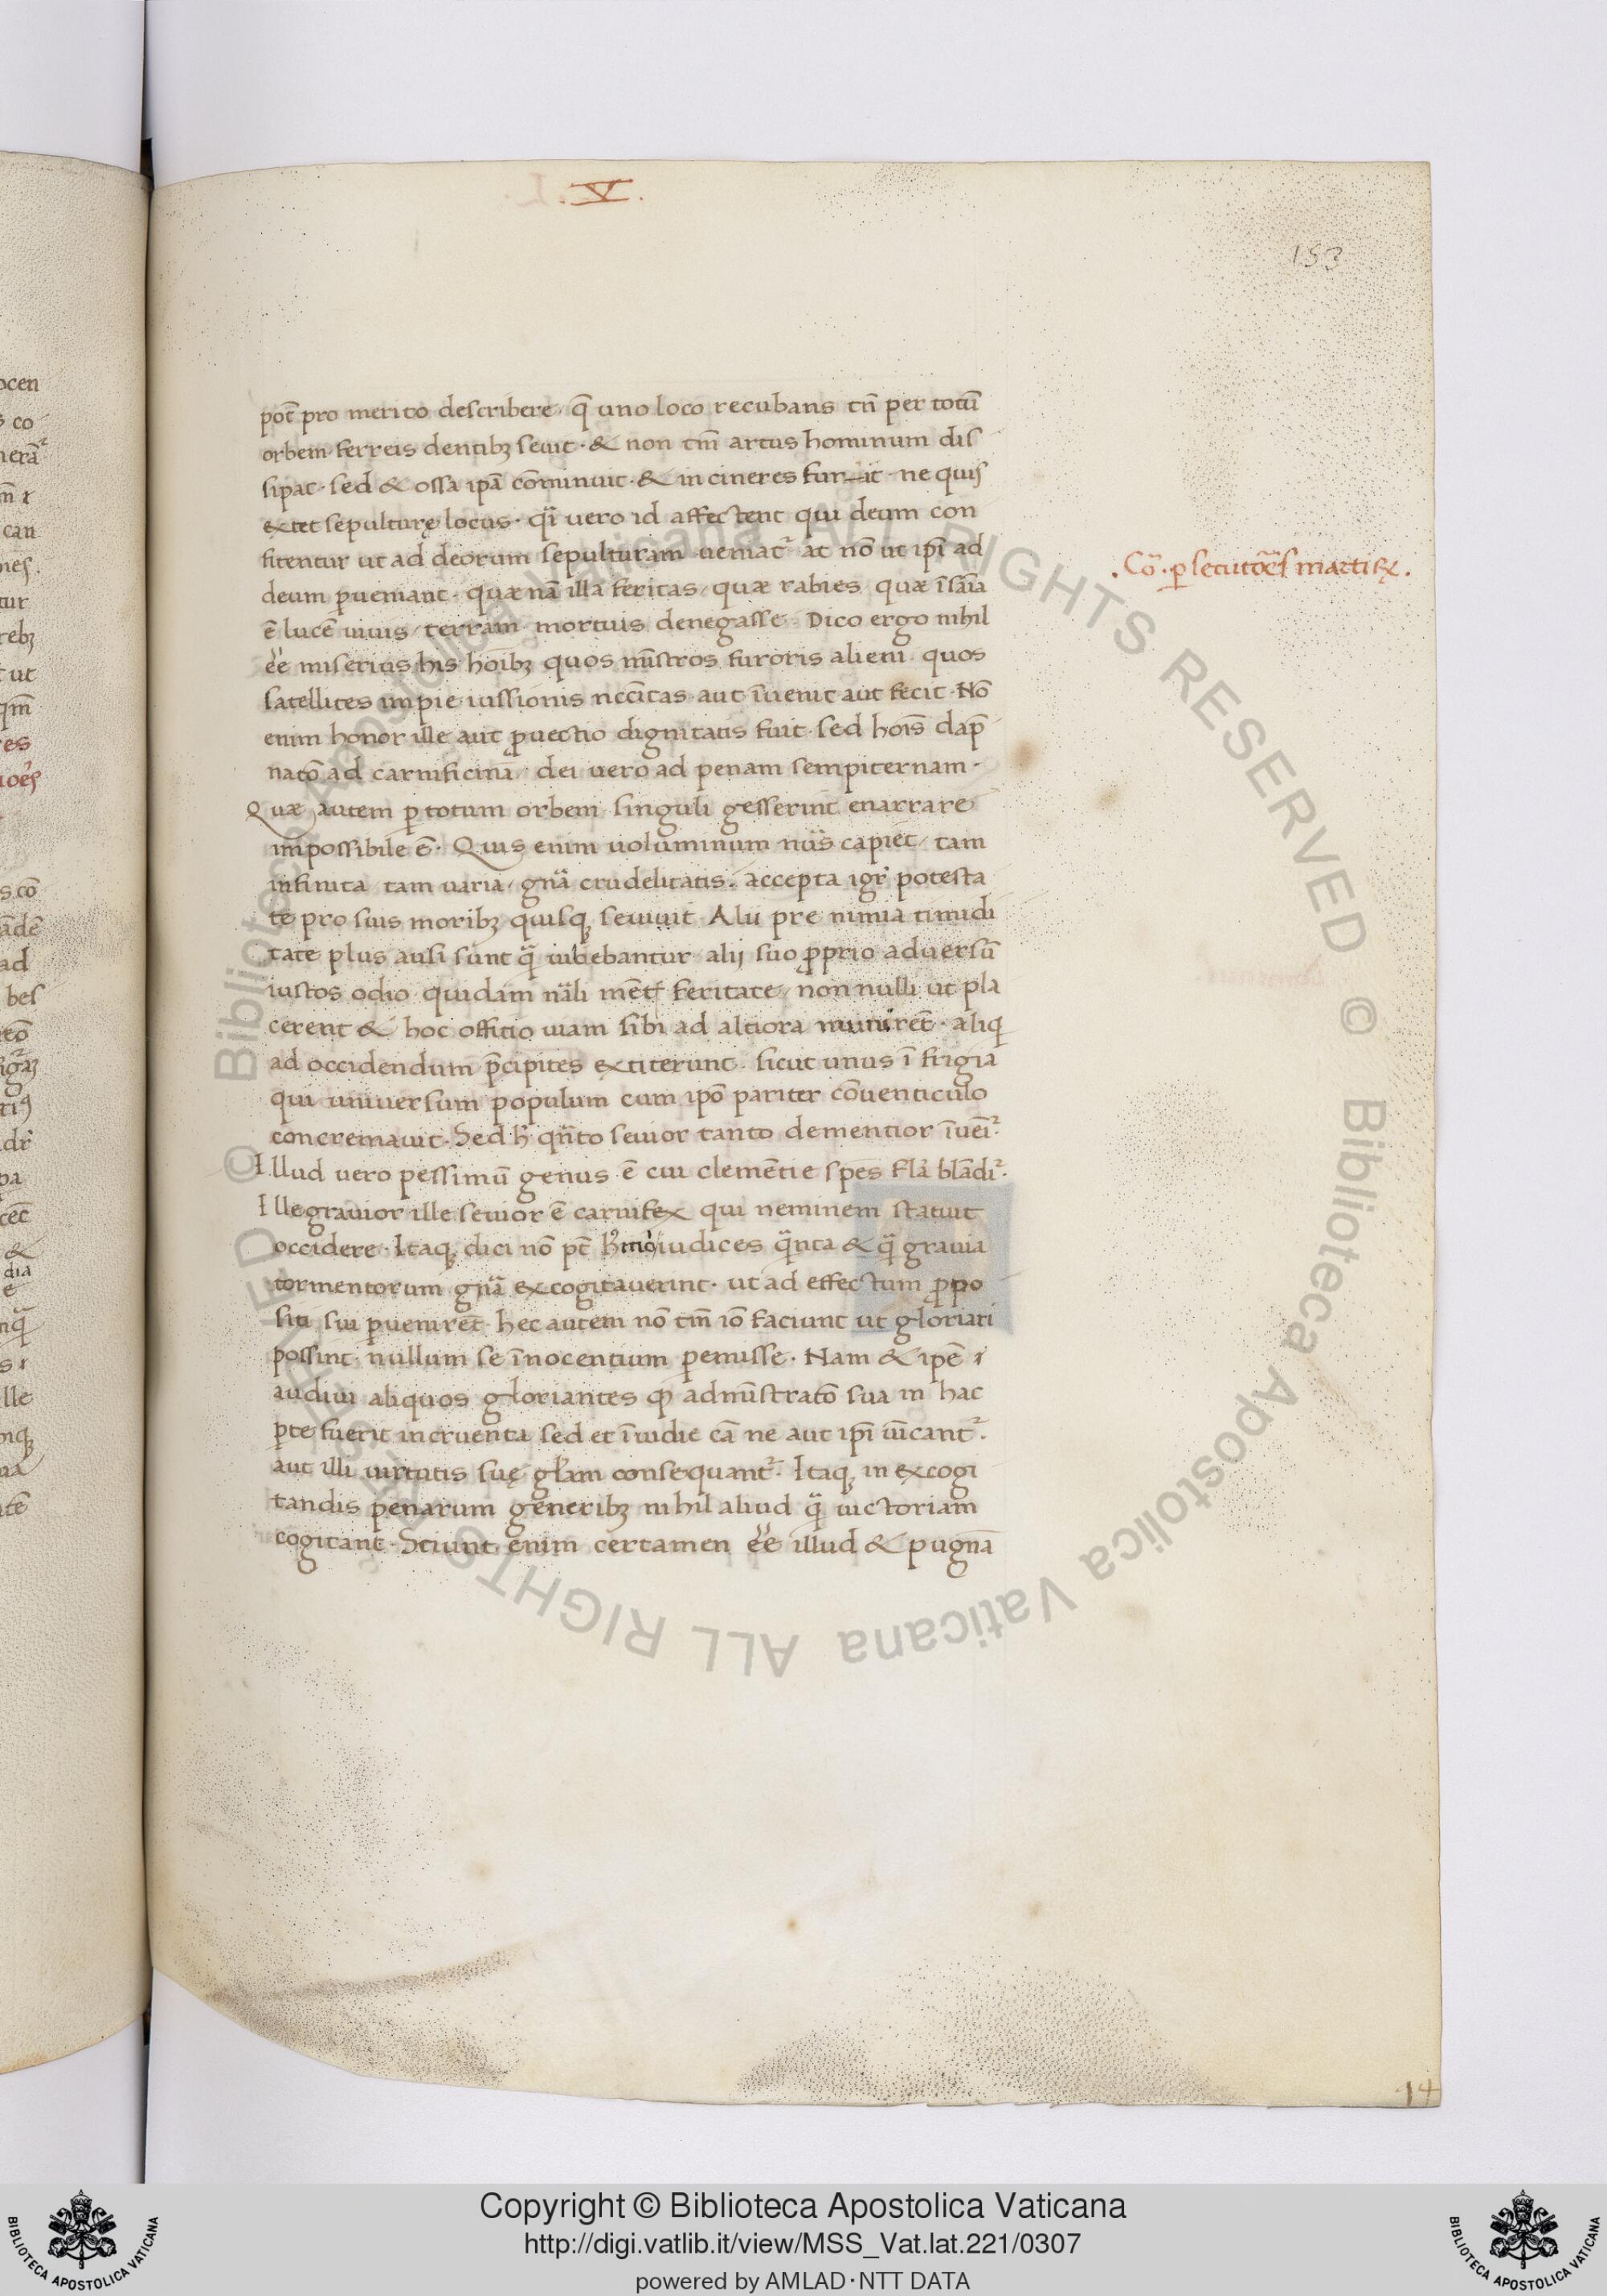 .V.
153
pot̄ pro merito describere, q̄ uno loco recubans tn̄ per totū
orbem ferreis dentibꝫ seuit · & non tm̄ artus hominum dis
sipat · sed & ossa ipā cōminuit · & in cineres furit · ne quis
extet sepulturę locus · qꝛ̄ uero id affectent qui deum con
fitentur ut ad deorum sepulturam ueniat᷑ ac nō ut ipı̄ ad
deum ꝑueniant · quæ nā illa feritas, quæ rabies, quæ īsaīa
ē lucē uiuis, terram mortuis denegasse · Dico ergo nihil
eē̄ miserius his hoībꝫ quos mı̄stros furoris alieni quos
satellites impie iussionis nccītas aut īuenit aut fecit · Nō
enim honor ille aut ꝓuectio dignitatis fuit · sed hoīs dāp
natō ad carnificinā, dei uero ad penam sempiternam ·
Quæ autem ꝑ totum orbem singuli gesserint enarrare
impossibile ē · Quis enim uoluminum nūs capiet, tam
infinita, tam uaria, gnā crudelitatis. accepta igr̄ potesta
te pro suis moribꝫ quisqꝫ seuiuit · Alii pre nimia timidi
tate plus ausi sunt qꝫ̄ iubebantur alij suo ꝓprio aduersū
iustos odio quidam nāli mēt̄ feritate, non nulli ut pla
cerent & hoc offitio uiam sibi ad altiora munirēt · aliq̄
ad occidendum p̄cipites extiterunt · sicut unus ī frigia
qui uniuersum populum cum ipō pariter cōuenticulo
concremauit · Sed h̄ qn̄to seuior tanto dementior īueı̄᷑
Illud uero pessimū genus ē cui clemētie spēs flā blādı᷑ ·
Ille grauior ille seuior ē carnifex qui neminem statuit
occidere · Itaqꝫ dici nō pt̄ hꝰmo̊i iudices q̄nta & q̄ grauia
tormentorum gnā excogitauerint · ut ad effectum ꝓpo
siti sui ꝑuenirēt · hec autem nō tm̄ iō faciunt ut gloriari
possint · nullum se īnocentium ꝑemisse · Nam & ipē ı
audiui aliquos gloriantes ꝙ admı̄stratō sua in hac
ꝑte fuerit incruenta sed et īuidie cā ne aut ipı̄ uı̄cant᷑ ·
aut illi uirtutis suę gl̄am consequant᷑ · Itaqꝫ in excogi
tandis penarum generibꝫ nihil aliud qꝫ̄ uictoriam
cogitant · Sciunt enim certamen eē̄ illud & pugnā
.Cō · ꝑsecutōes martiꝝ.
14
Copyright © Biblioteca Apostolica Vaticana
http://digi.vatlib.it/view/MSS_Vat.lat.221/0307
powered by AMLAD·NTT DATA
BIBLIOTECA APOSTOLICA VATICANA
BIBLIOTECA APOSTOLICA VATICANA
© Biblioteca Apostolica Vaticana ALL RIGHTS RESERVED © Biblioteca Apostolica Vaticana ALL RIGHTS RESERVED